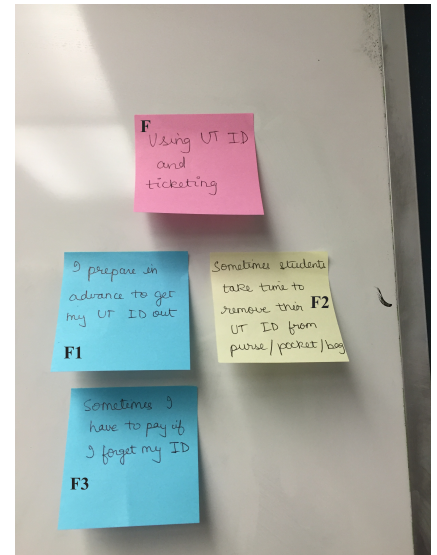 F
Using UT ID
and
ticketing
I prepare in
advance to get
my UT ID out
F1
Sometimes students
take time to
remove their F2
UT ID from
purse/pocket/bag
Sometimes I
have to pay if
I forget my ID
F3